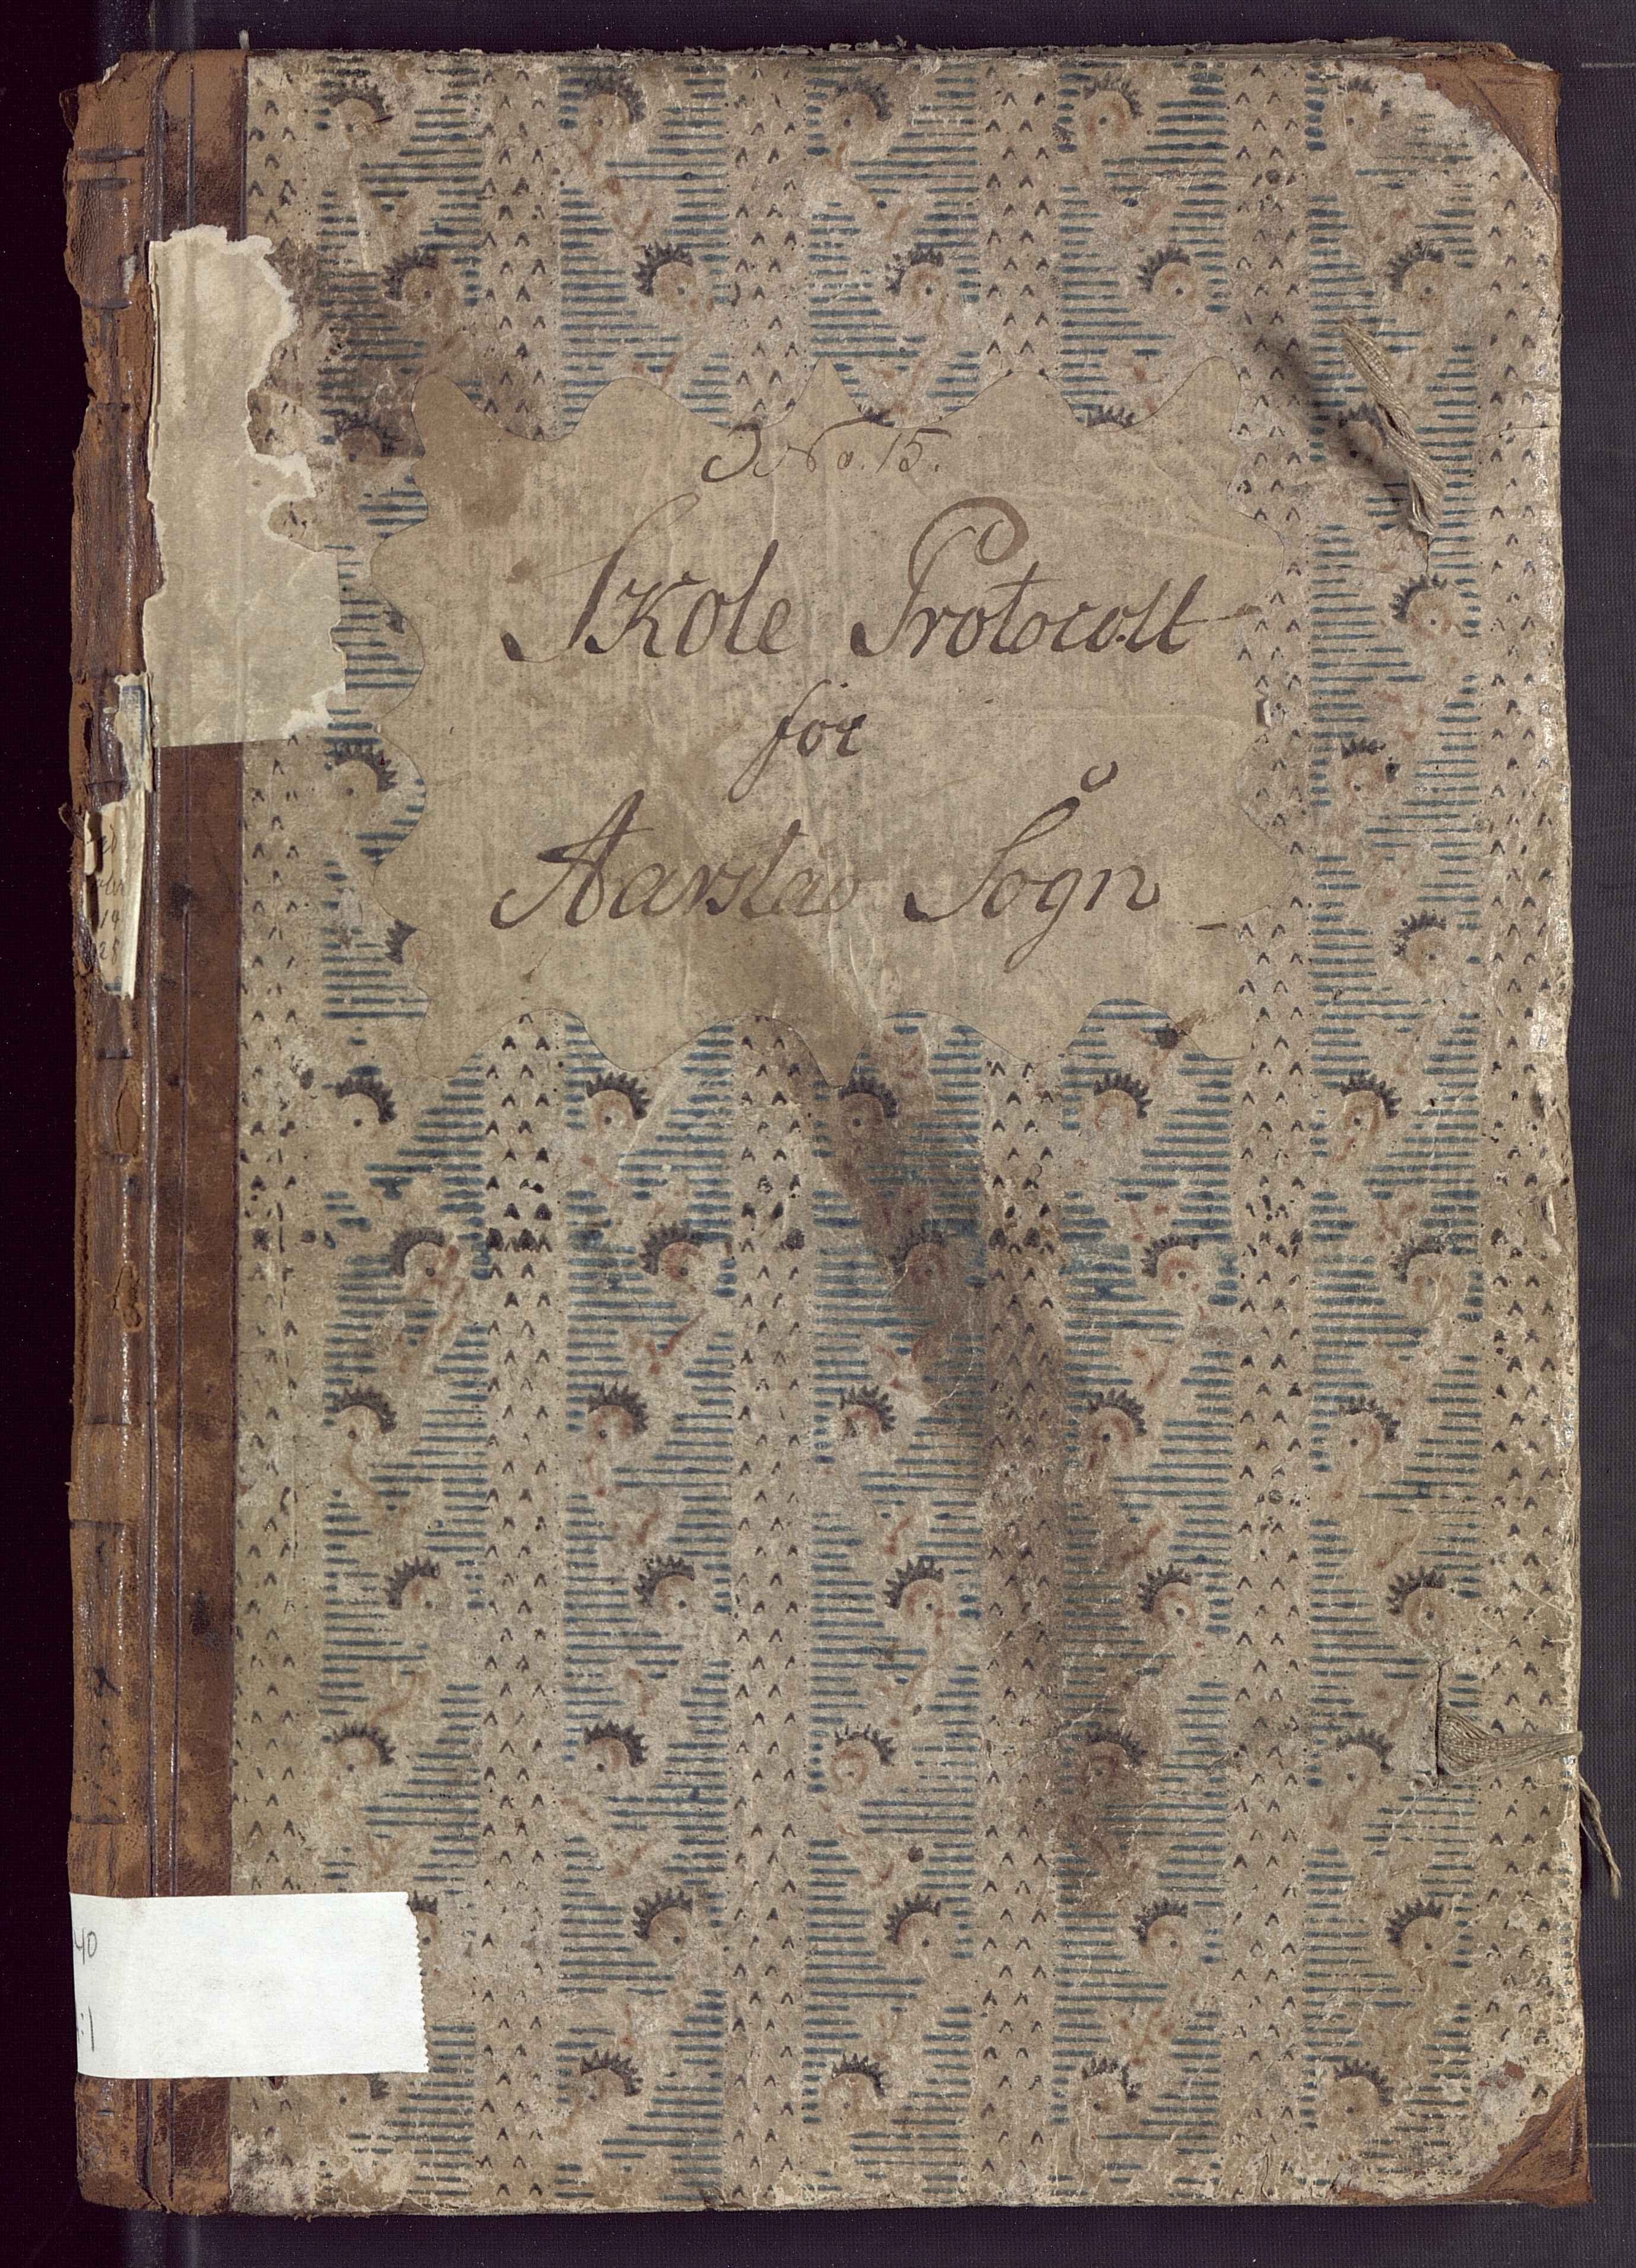 No. 15.
Skole Protocoll
for
Aarstad Sogn
14
28
40
:1